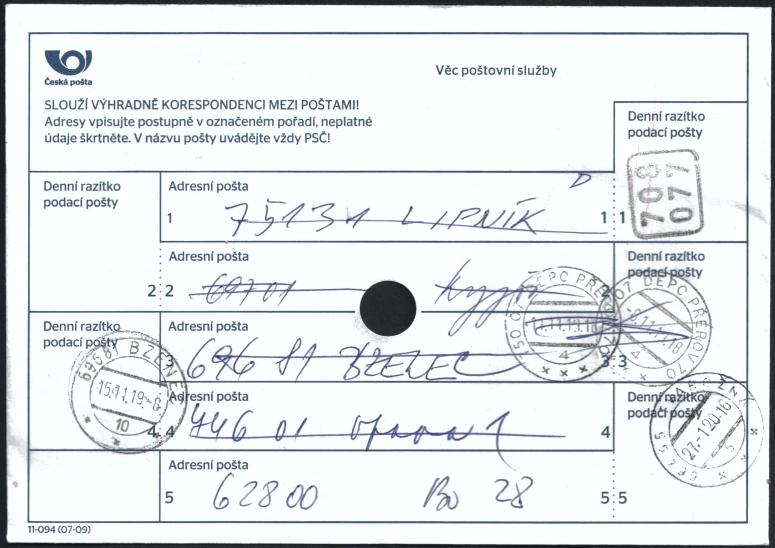 Česká pošta
Věc poštovní služby
SLOUŽÍ VÝHRADNĚ KORESPONDENCI MEZI POŠTAMI!
Adresy vpisujte postupně v označeném pořadí, neplatné
údaje škrtněte. V názvu pošty uvádějte vždy PSČ!
Denní razítko
podací pošty
708
077
Denní razítko
podací pošty
Adresní pošta
1 75131 LIPNÍK 1 1
Adresní pošta
2 2 69701 Kyjov 2
Denní razítko
podací pošty
750 07 DEPO PŘEROV 70
4
Denní razítko
podací pošty
Adresní pošta
3 696 81 BZENEC 3 3
69681 BZENEC
15.11.19-6
10
Adresní pošta
4 4 746 01 Opava 1 4
Denní razítko
podací pošty
27.-1.20-16
Adresní pošta
5 62800 Bo 28 5 5
11-094 (07-09)